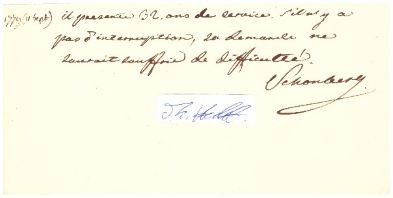 1779 (11 Sept) il presente 32. ans de service. S'il n'y a
pas d'interruption, sa demande ne
sauroit souffrir de difficulté.
Schonberg